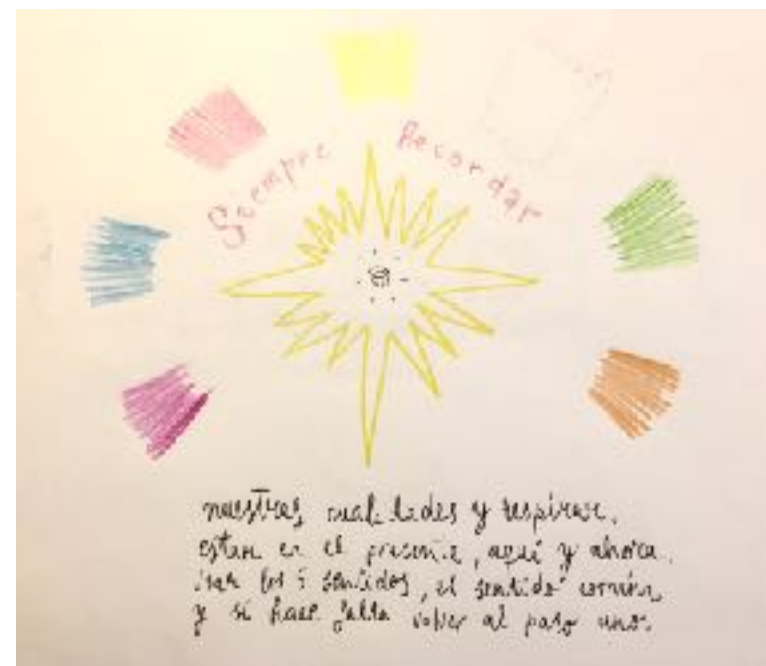 Siempre Recordar
nuestras cualidades y respirar,
estar en el presente, aquí y ahora.
Usar los 5 sentidos, el sentido común,
y si hace falta volver al paso uno.